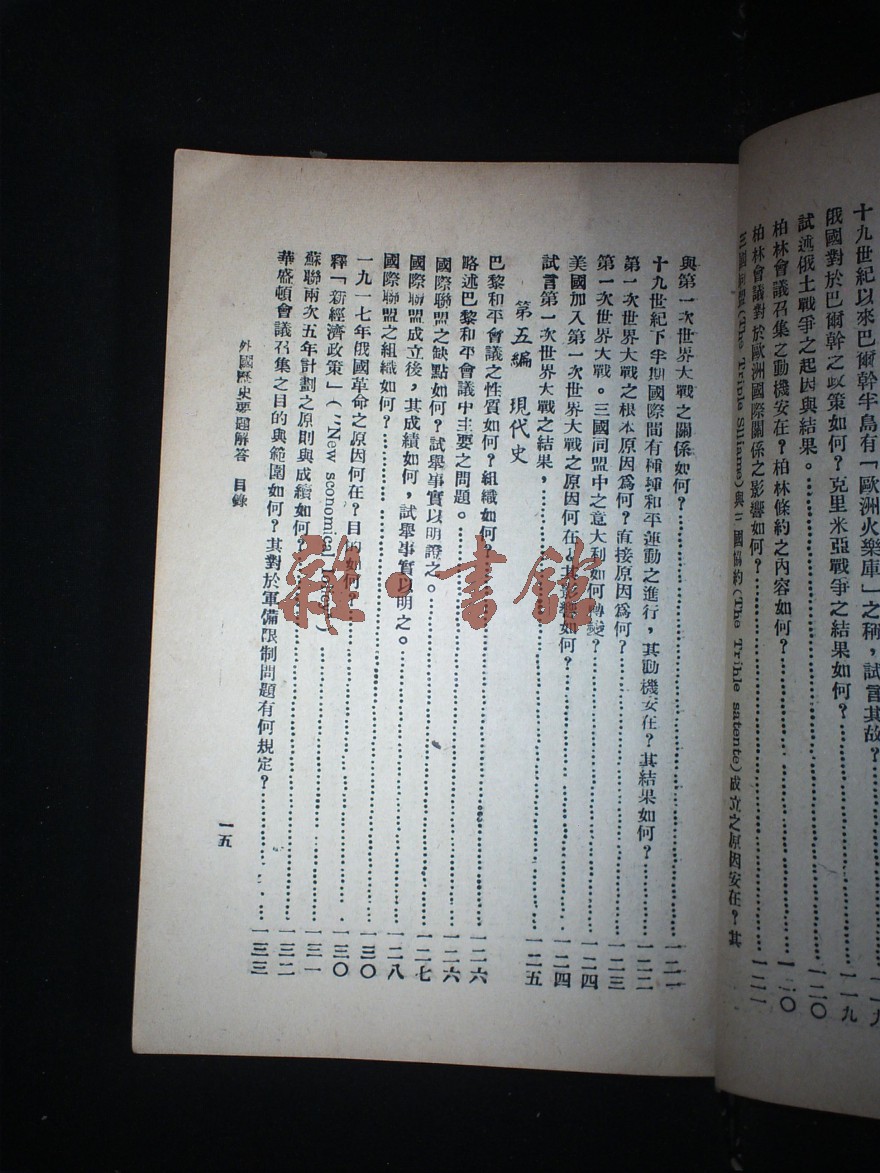 十九世紀以來巴爾幹半島有「歐洲火藥庫」之稱，試言其故？……一一九
俄國對於巴爾幹之政策如何？克里米亞戰爭之結果如何？……一一九
試述俄土戰爭之起因與結果。……一二〇
柏林會議召集之動機安在？柏林條約之內容如何？……一二〇
柏林會議對於歐洲國際關係之影響如何？……一二一
同盟(The Trible Slliame)與三國協約(The Trible satente)成立之原因安在？其
與第一次世界大戰之關係如何？……一二一
十九世紀下半期國際間有種種和平運動之進行，其動機安在？其結果如何？……一二二
第一次世界大戰之根本原因爲何？直接原因爲何？……一二三
第一次世界大戰。三國同盟中之意大利如何轉變？……一二四
美國加入第一次世界大戰之原因何在？其影響如何？……一二四
試言第一次世界大戰之結果，……一二五
第五編 現代史
巴黎和平會議之性質如何？組織如何？……一二六
略述巴黎和平會議中主要之問題。……一二六
國際聯盟之缺點如何？試舉事實以明證之。……一二六
國際聯盟成立後，其成績如何，試舉事實以明之。……一二七
國際聯盟之組織如何？……一二八
一九一七年俄國革命之原因何在？目的如何？……一三〇
釋「新經濟政策」("New sconomical……一三〇
蘇聯兩次五年計劃之原則與成績如何？……一三一
華盛頓會議召集之目的與範圍如何？其對於軍備限制問題有何規定？……一三二
一三三
外國歷史要題解答 目錄
一五
雜·書館